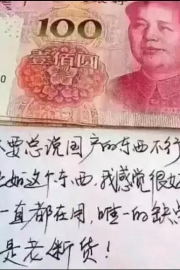 100
壹佰圆
不要总说国产的东西不行
比如这个东西,我感觉很好
一直都在用,唯一的缺点
是老断货!